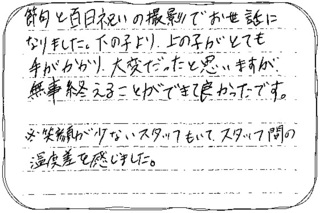 節句と百日祝いの撮影でお世話に
なりました。下の子より、上の子がとても
手がかかり、大変だったと思いますが、
無事終えることができて良かったです。
※笑顔が少ないスタッフもいて、スタッフ間の
温度差を感じました。